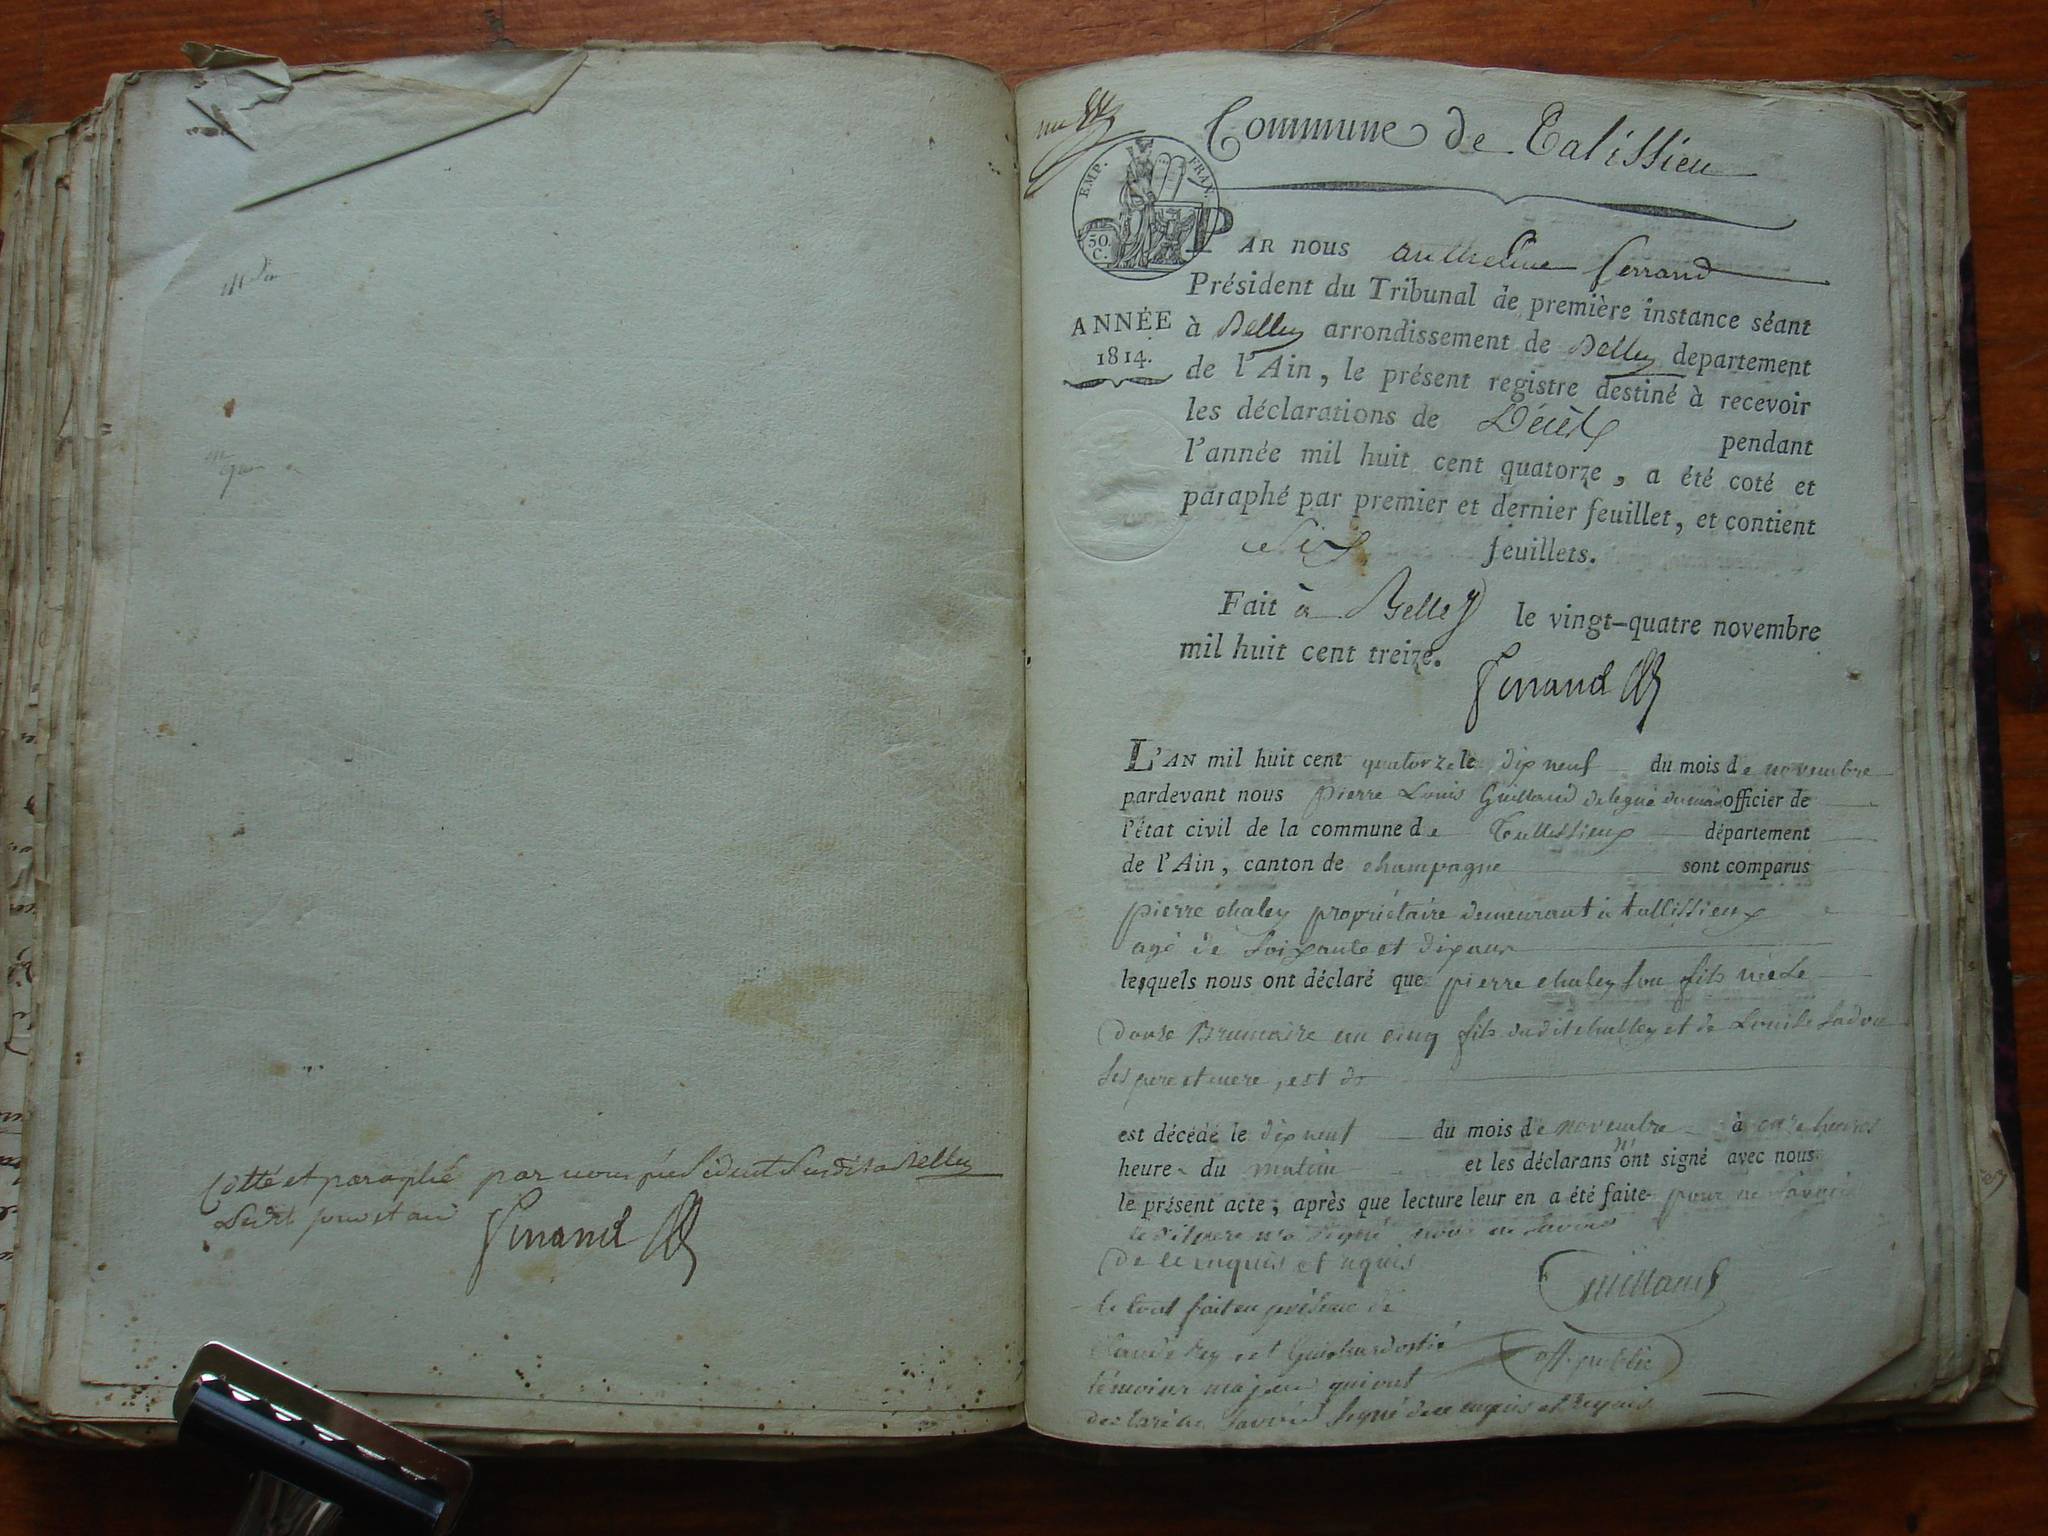 Cotté et paraphé par nous président susdit à Belley
Ferrand
Commune de Talissieu
EMP. FRAN.
30. C.
PAR nous anthelme ferrand
Président du Tribunal de première instance séant
ANNÉE
1814.
à Belley arrondissement de Belley departement
de l'Ain, le présent registre destiné à recevoir
les déclarations de Décès pendant
l'année mil huit cent quatorze, a été coté et
paraphé par premier et dernier feuillet, et contient
six feuillets.
Fait à Belley le vingt-quatre novembre
mil huit cent treize.
Ferrand
L'AN mil huit cent quatorze le dix neuf du mois de novembre
pardevant nous pierre Louis Guillaud delegué officier de
l'état civil de la commune de Tallissieux département
de l'Ain, canton de champagne sont comparus
pierre chaley propriétaire demeurant à tallissieux
agé de soixante et dix ans
lesquels nous ont déclaré que pierre chaley son fils née le
douze Brumaire an cinq fils dudit challey et de Louise
ses pere et mere, est de
est décédé le dix neuf du mois de novembre à onze heures
heure du matin et les déclarans n'ont signé avec nous
le présent acte; après que lecture leur en a été faite pour ne savoir
le dit pere n'a signé pour ne savoir
de ce enquis et requis
Guillaud
le tout fait en présence de
Claude Rey et Guichard
off. public
témoins majeurs qui ont
declaré ne savoir signé de ce enquis et requis